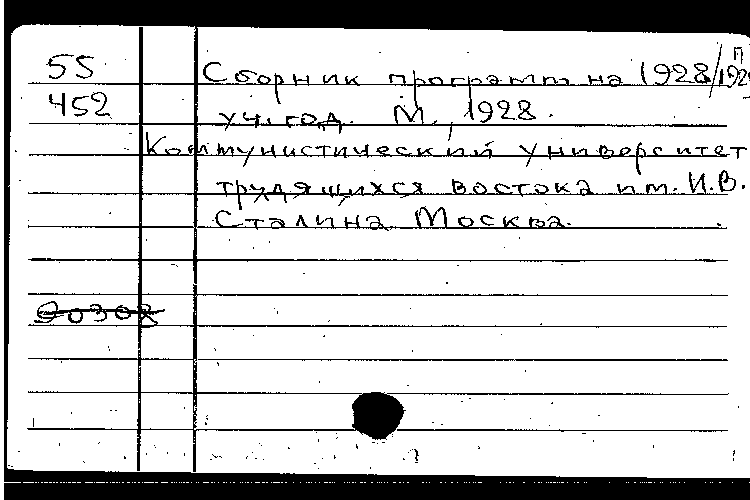 П
55 Сборник программ на 1928/1929
452 уч. год. М., 1928.
Коммунистический университет
трудящихся востока им. И.В.
Сталина Москва.
90308